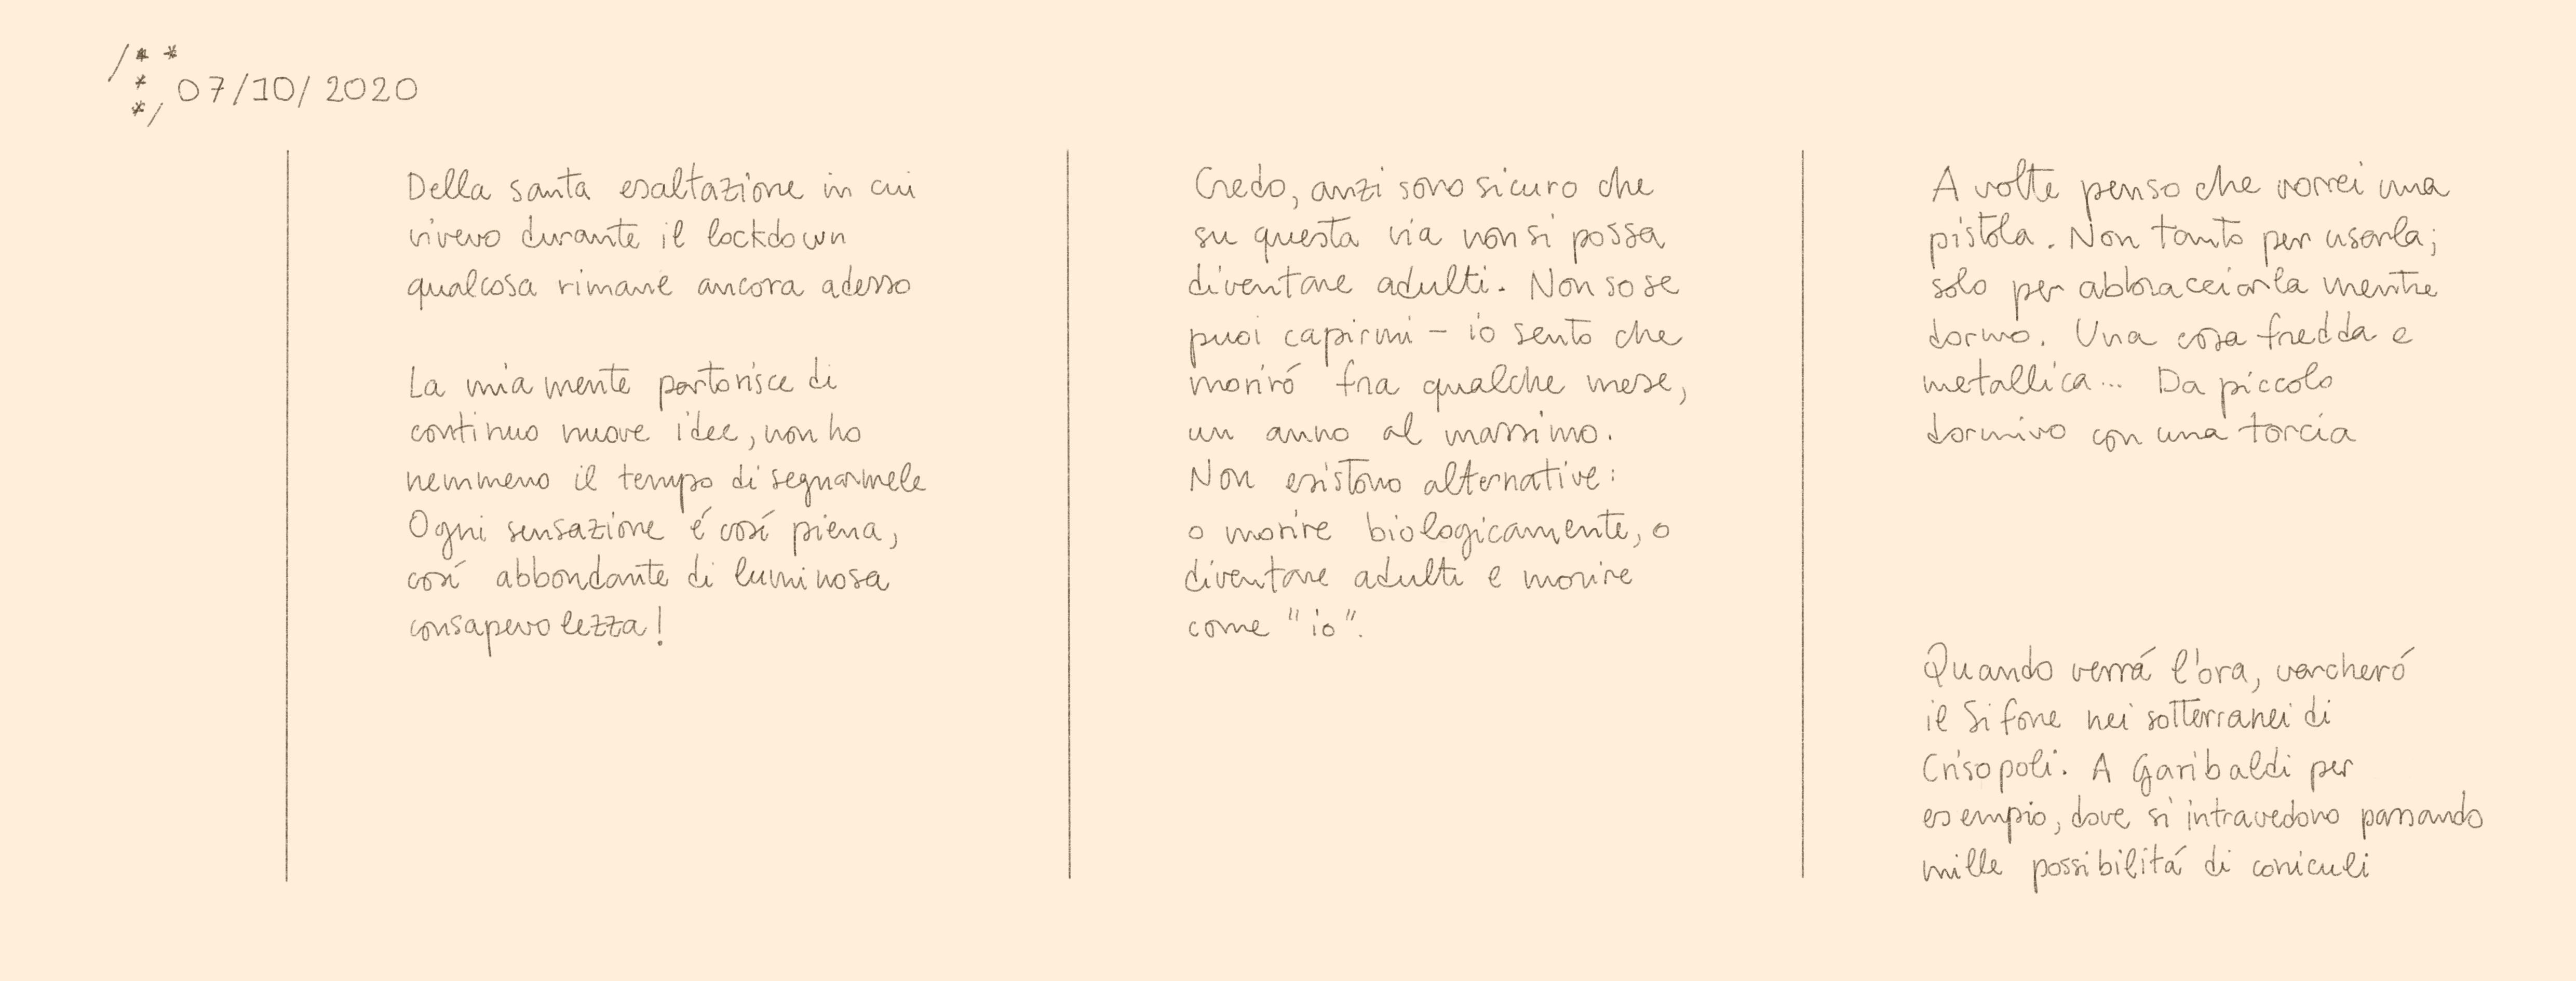 /** 
* 07/10/2020
*/
Della santa esaltazione in cui
vivevo durante il lockdown
qualcosa rimane ancora adesso
La mia mente partorisce di
continuo nuove idee, non ho
nemmeno il tempo di segnarmele
Ogni sensazione é cosí piena,
cosí abbondante di luminosa
consapevolezza!
Credo, anzi sono sicuro che
su questa via non si possa
diventare adulti. Non so se
puoi capirmi - io sento che
moriró fra qualche mese,
un anno al massimo.
Non esistono alternative:
o morire biologicamente, o
diventare adulti e morire
come "io".
A volte penso che vorrei una
pistola. Non tanto per usarla;
solo per abbracciarla mentre
dormo. Una cosa fredda e
metallica... Da piccolo
dormivo con una torcia
Quando verrá l'ora, varcheró
il Sifone nei sotterranei di
Crisopoli. A Garibaldi per
esempio, dove si intravedono passando
mille possibilitá di coniculi